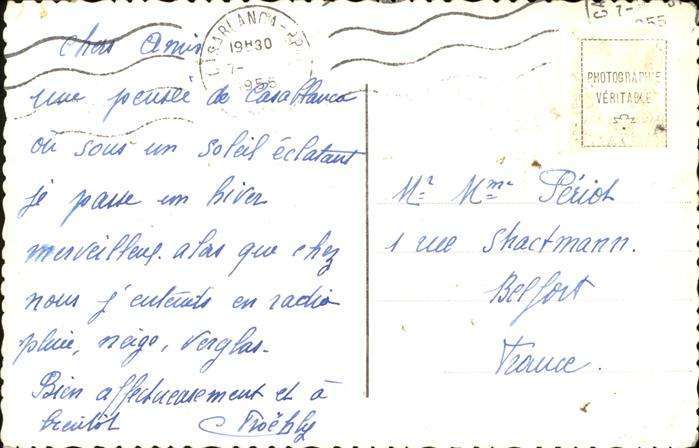 Chers Amis
une pensée de Casablanca
où sous un soleil éclatant
je passe un hiver
merveilleux. alors que chez
nous j'entends en radio
pluie, neige, verglas.
Bien affectueusement et à
bientôt
CASABLANCA
19H30
7-
1955
7-
1955
PHOTOGRAPHIE
VÉRITABLE
Mr Mme Périot
1 rue Shactmann.
Belfort
France.